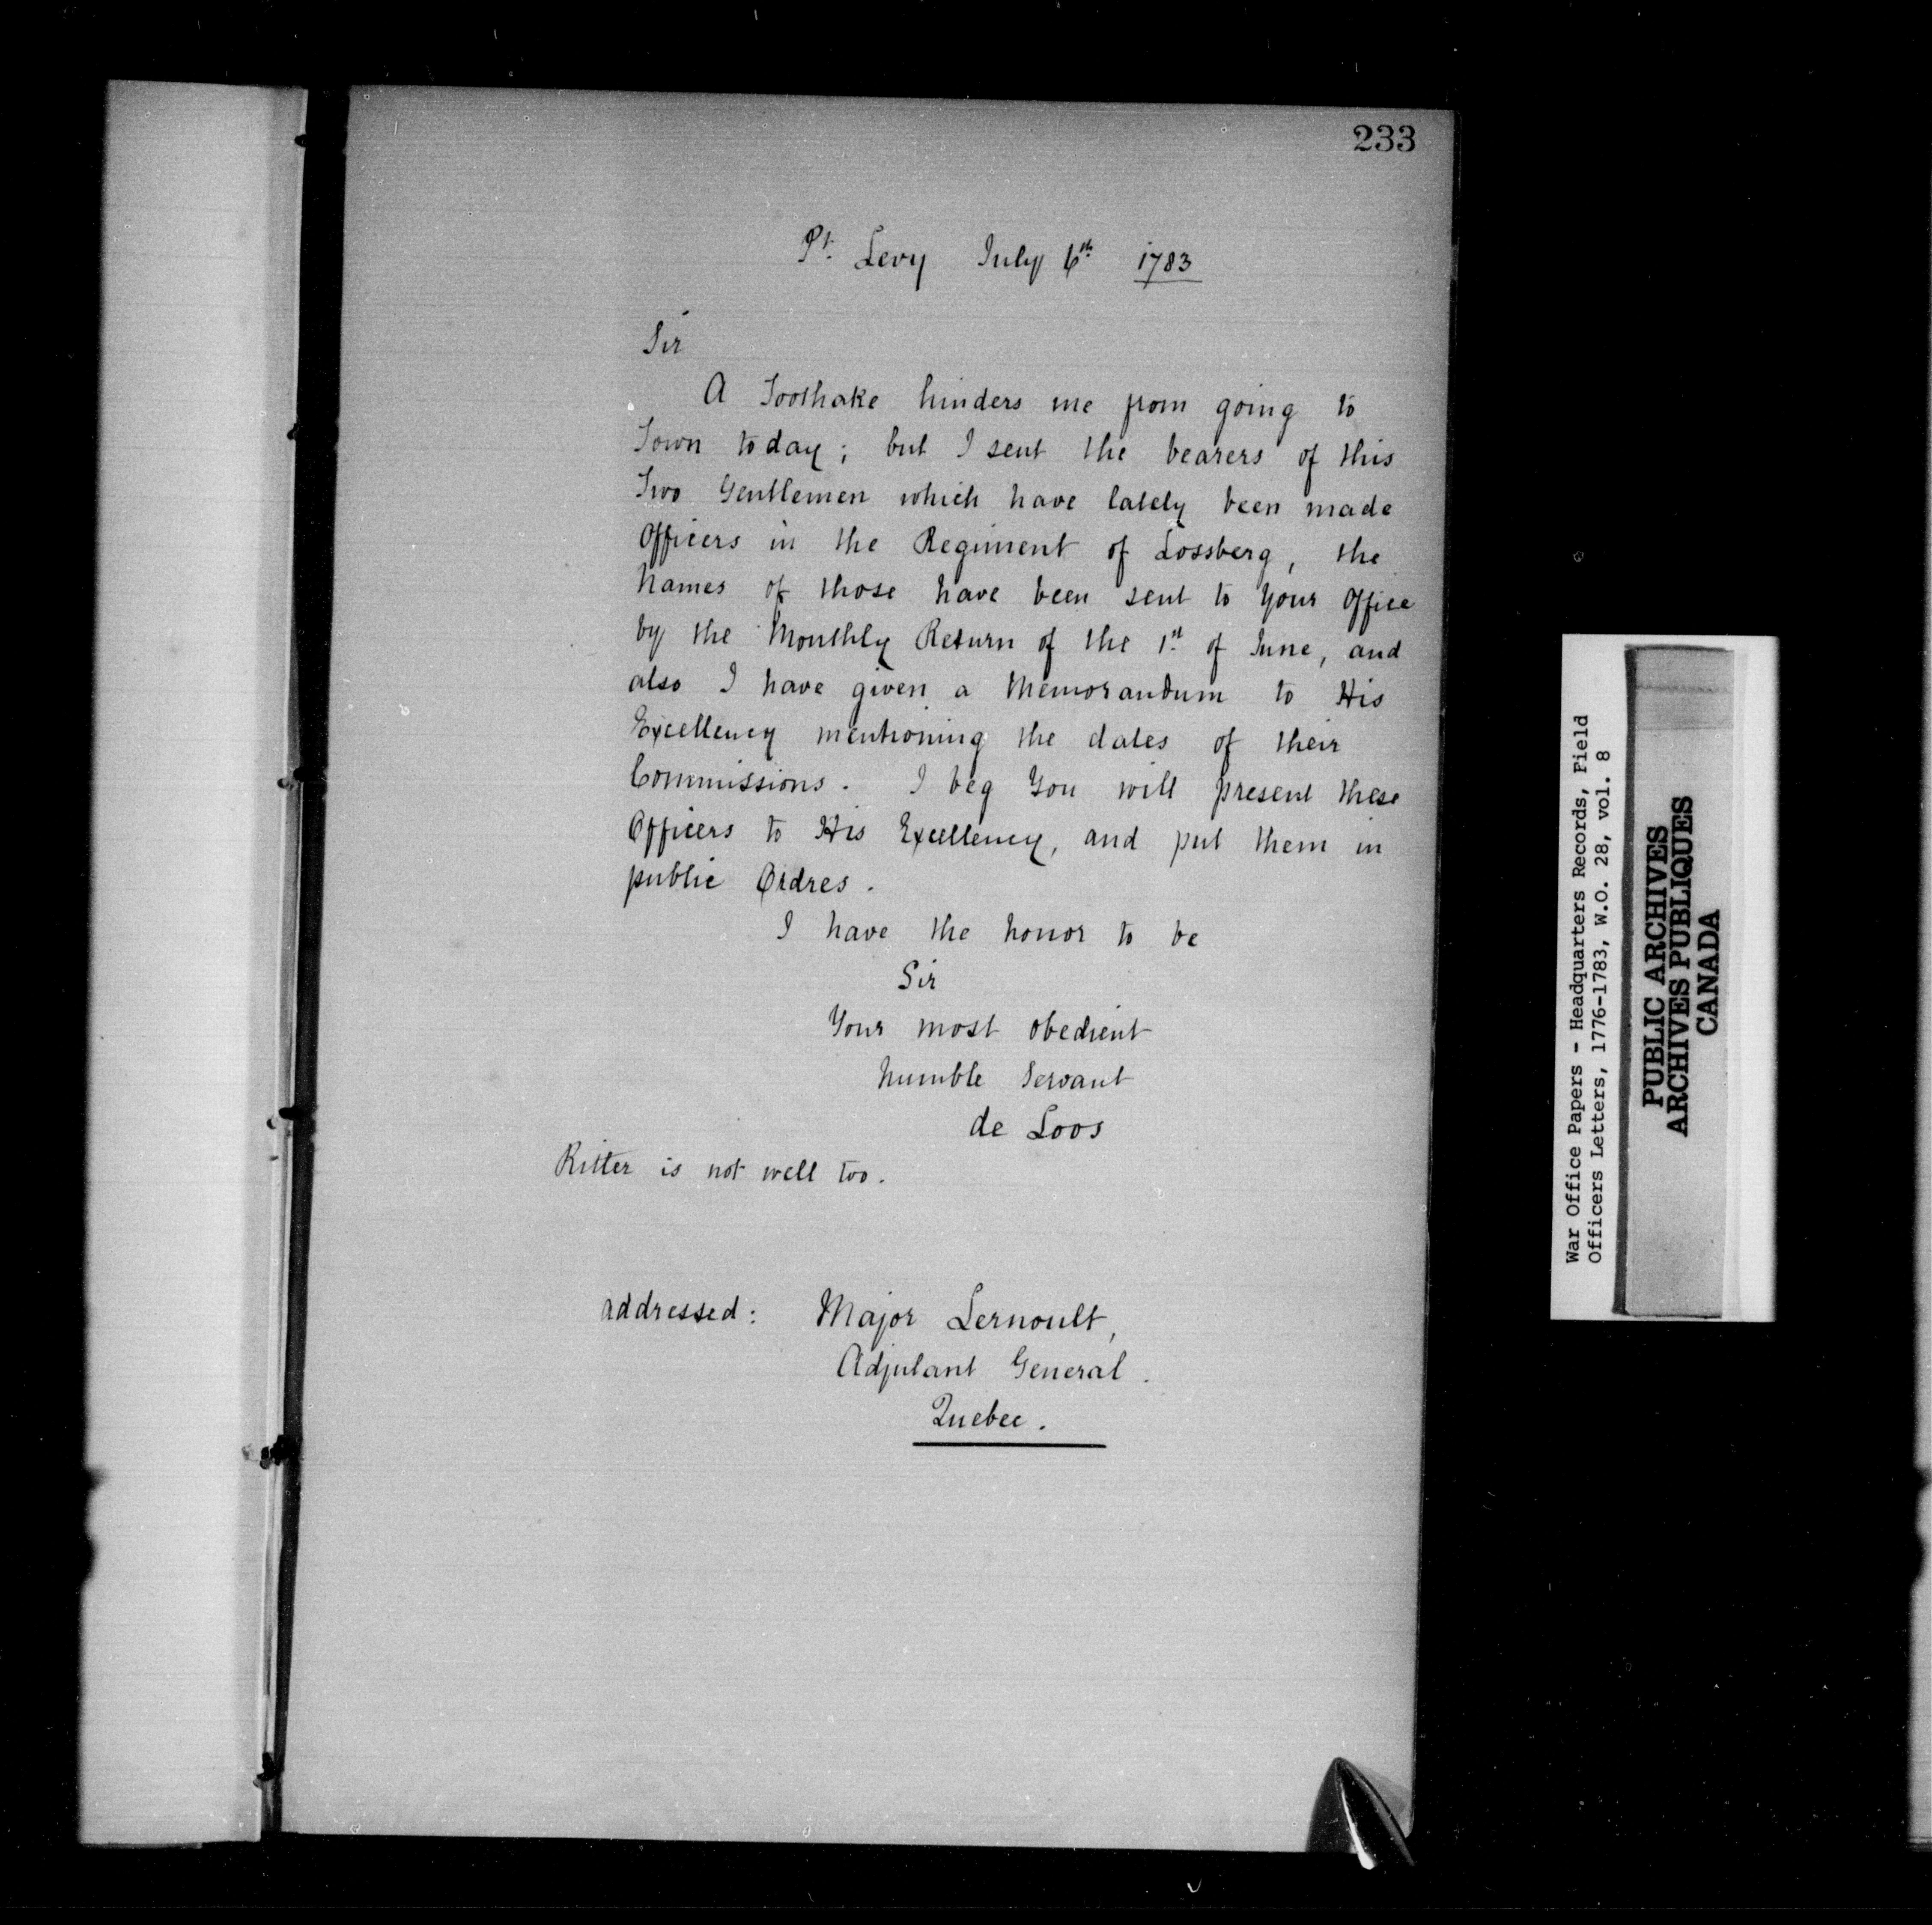 233
Pt. Levy July 6th. 1783
Sir
A Toothake hinders me from going to
Town today; but I sent the bearers of this
Two Gentlemen which have lately been made
Officers in the Regiment of Lossberg, the
Names of those have been sent to Your Office
by the Monthly Return of the 1st. of June, and
also I have given a Memorandum to His
Excellency mentioning the dates of their
Commissions. I beg You will present these
Officers to His Excellency, and put them in
public Ordres.
I have the honor to be
Sir
Your most obedient
humble Servant
de Loos
Ritter is not well too.
addressed: Major Lernoult,
Adjutant General.
Quebec.
War Office Papers - Headquarters Records, Field
Officers Letters, 1776-1783, W.O. 28, vol. 8
PUBLIC ARCHIVES
ARCHIVES PUBLIQUES
CANADA